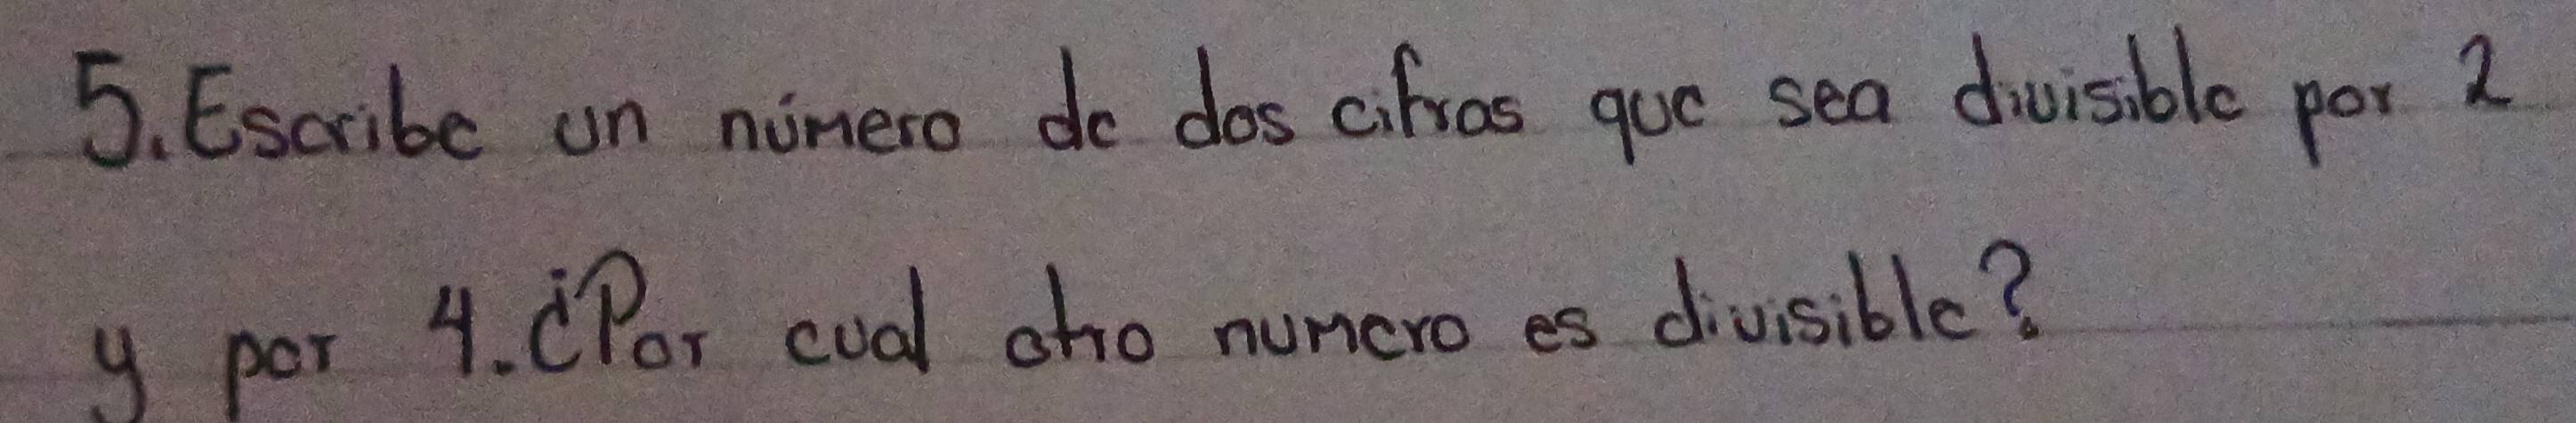 5. Escribe un número de dos cifras que sea divisible por 2
y por 4. ¿Por cual otro numero es divisible?